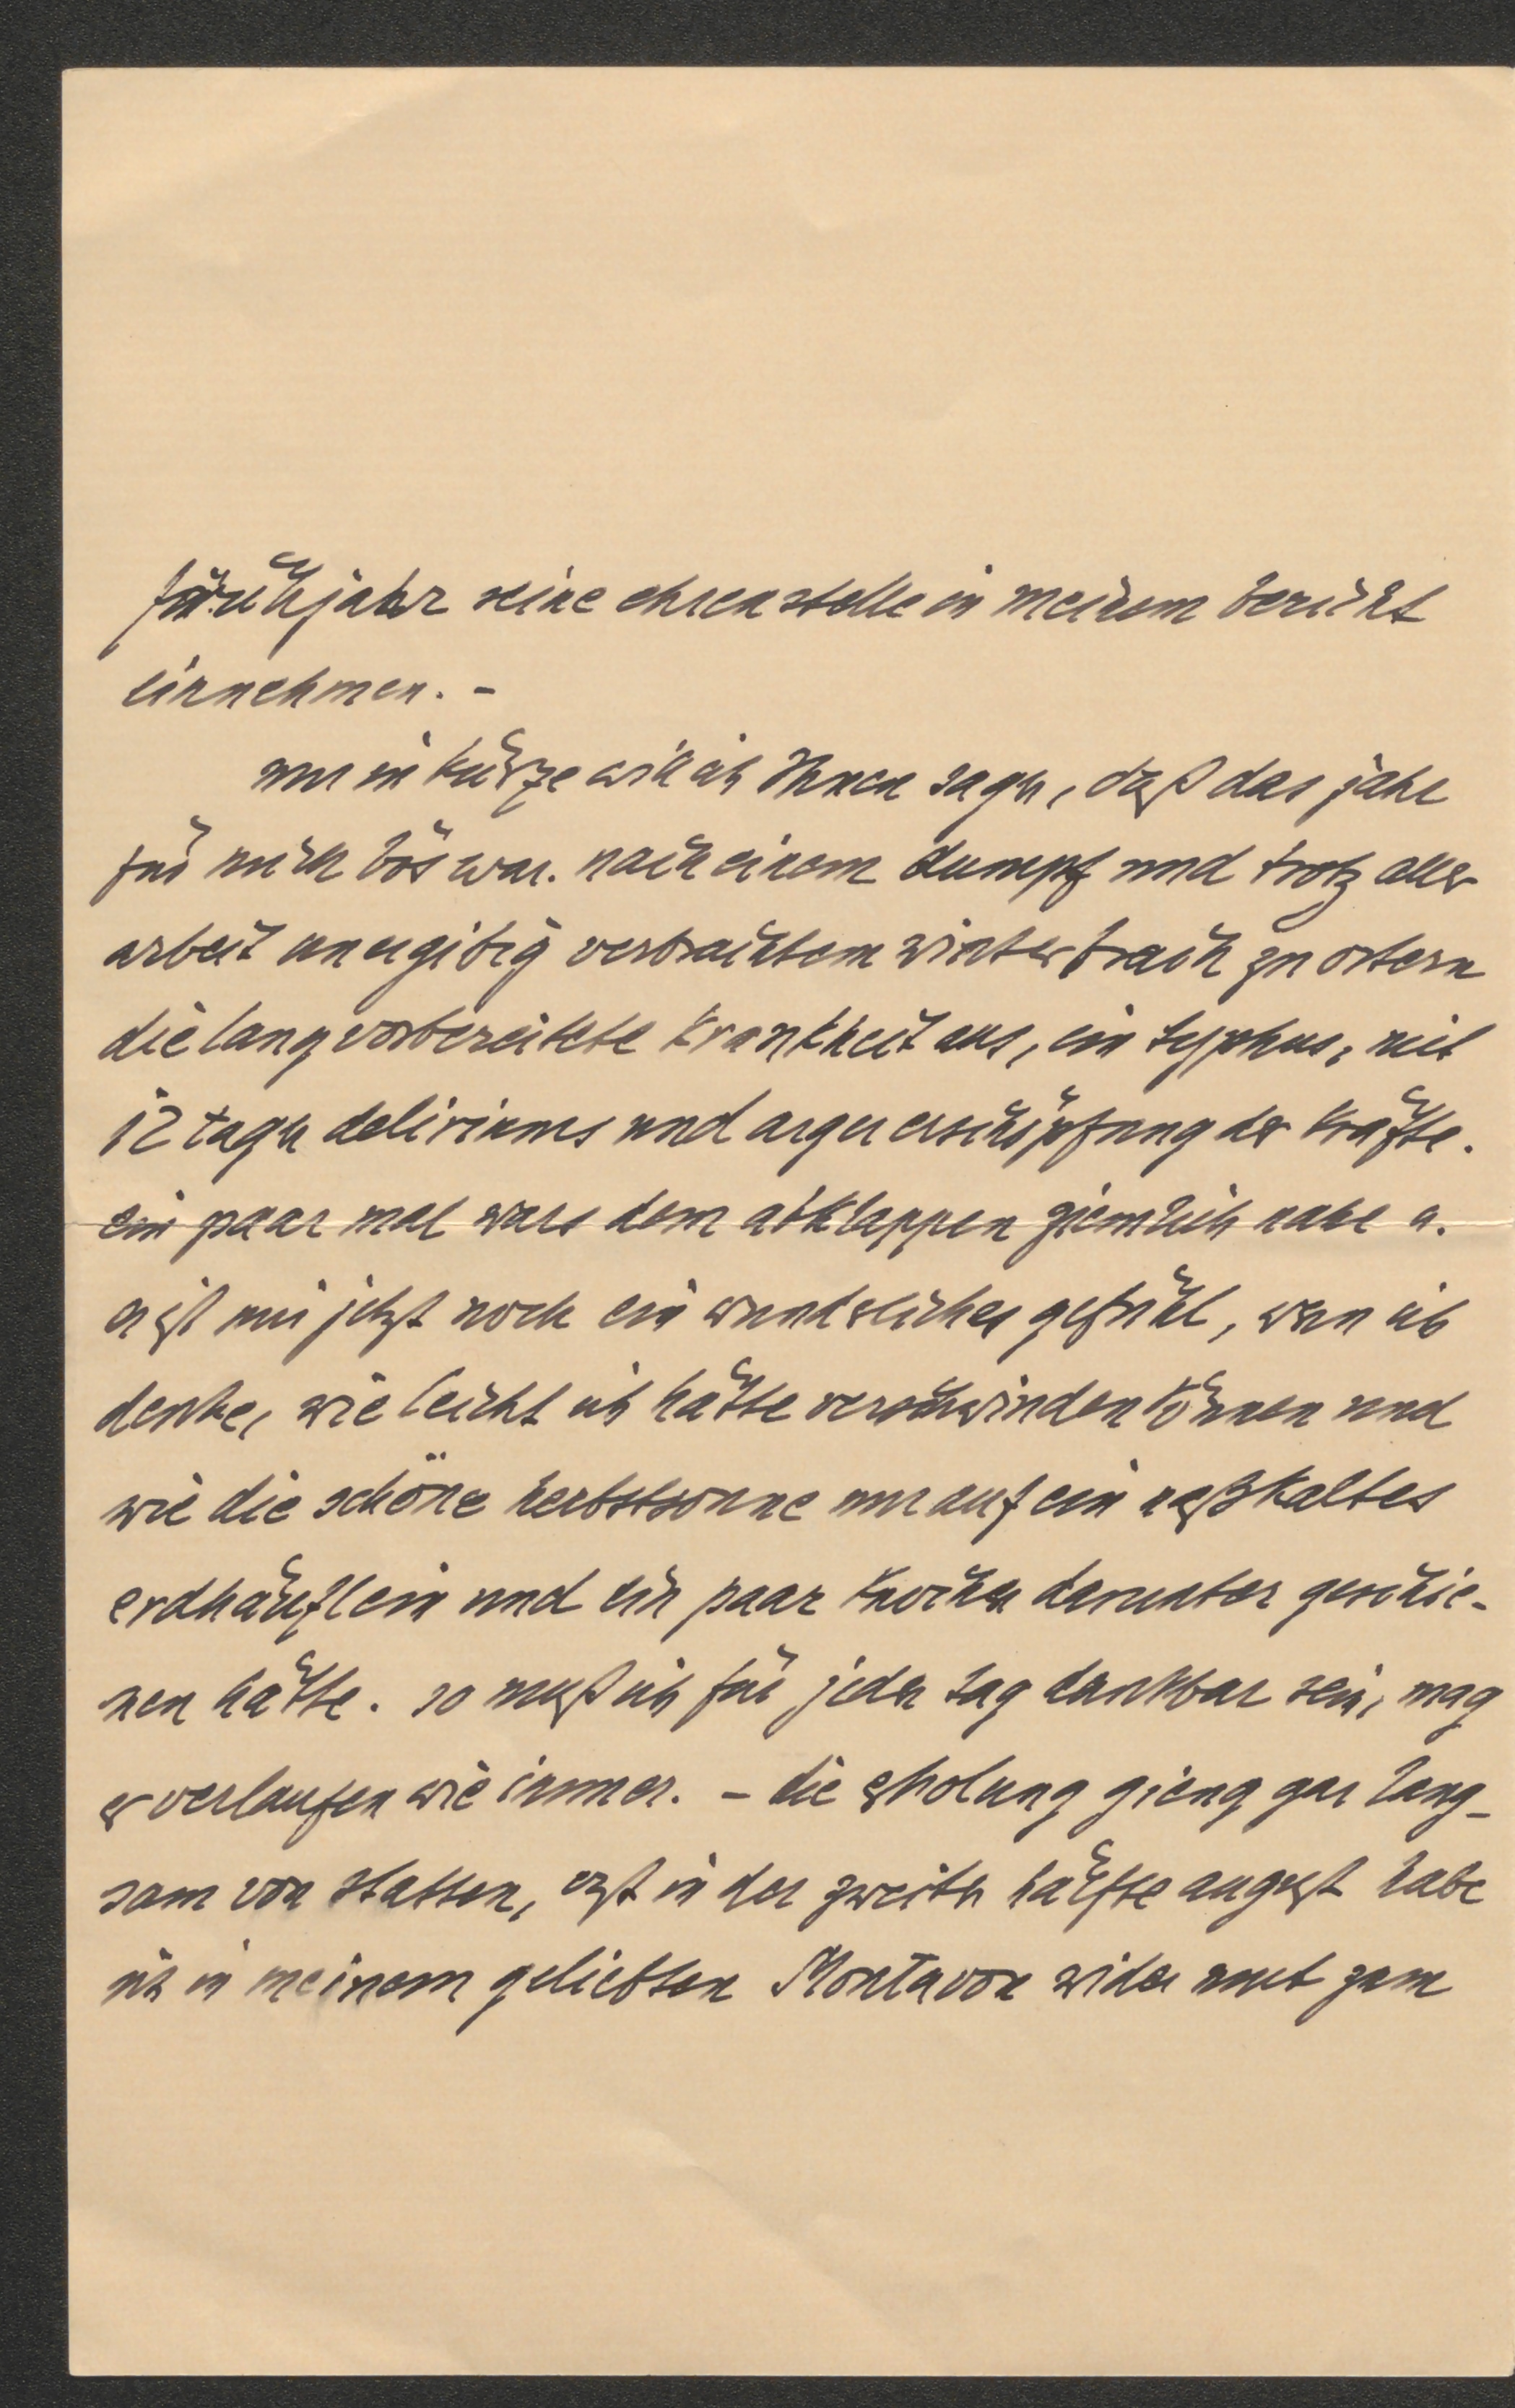 früühjahr seine ehrenstelle in meinem bericht
einnehmen. -
nur in kürze will ich Ihnen sagen, daß das jahr
für mich bös war. nach einem dumpf und trotz aller
arbeit unergibig verbrachtem winter brach zu ostern
die lang vorbereitete krankheit aus, ein typhus, mit
12 tagen deliriums und arger erschöpfung der kräfte.
ein paar mal wars dem abklappen ziemlich nahe u.
es ist mir jetzt noch ein wunderliches gefühl, wenn ich
denke, wie leicht ich hätte verschwinden können und
wie die schöne herbstsonne nur auf ein naßkaltes
erdhäuflein und ein paar knochen darunter geschie-
nen hätte. so muß ich für jeden tag dankbar sein, mag
er verlaufen wie immer. - die erholung gieng gar lang-
sam von statten, erst in der zweiten hälfte august habe
ich in meinem geliebten Montavon wider mut zum